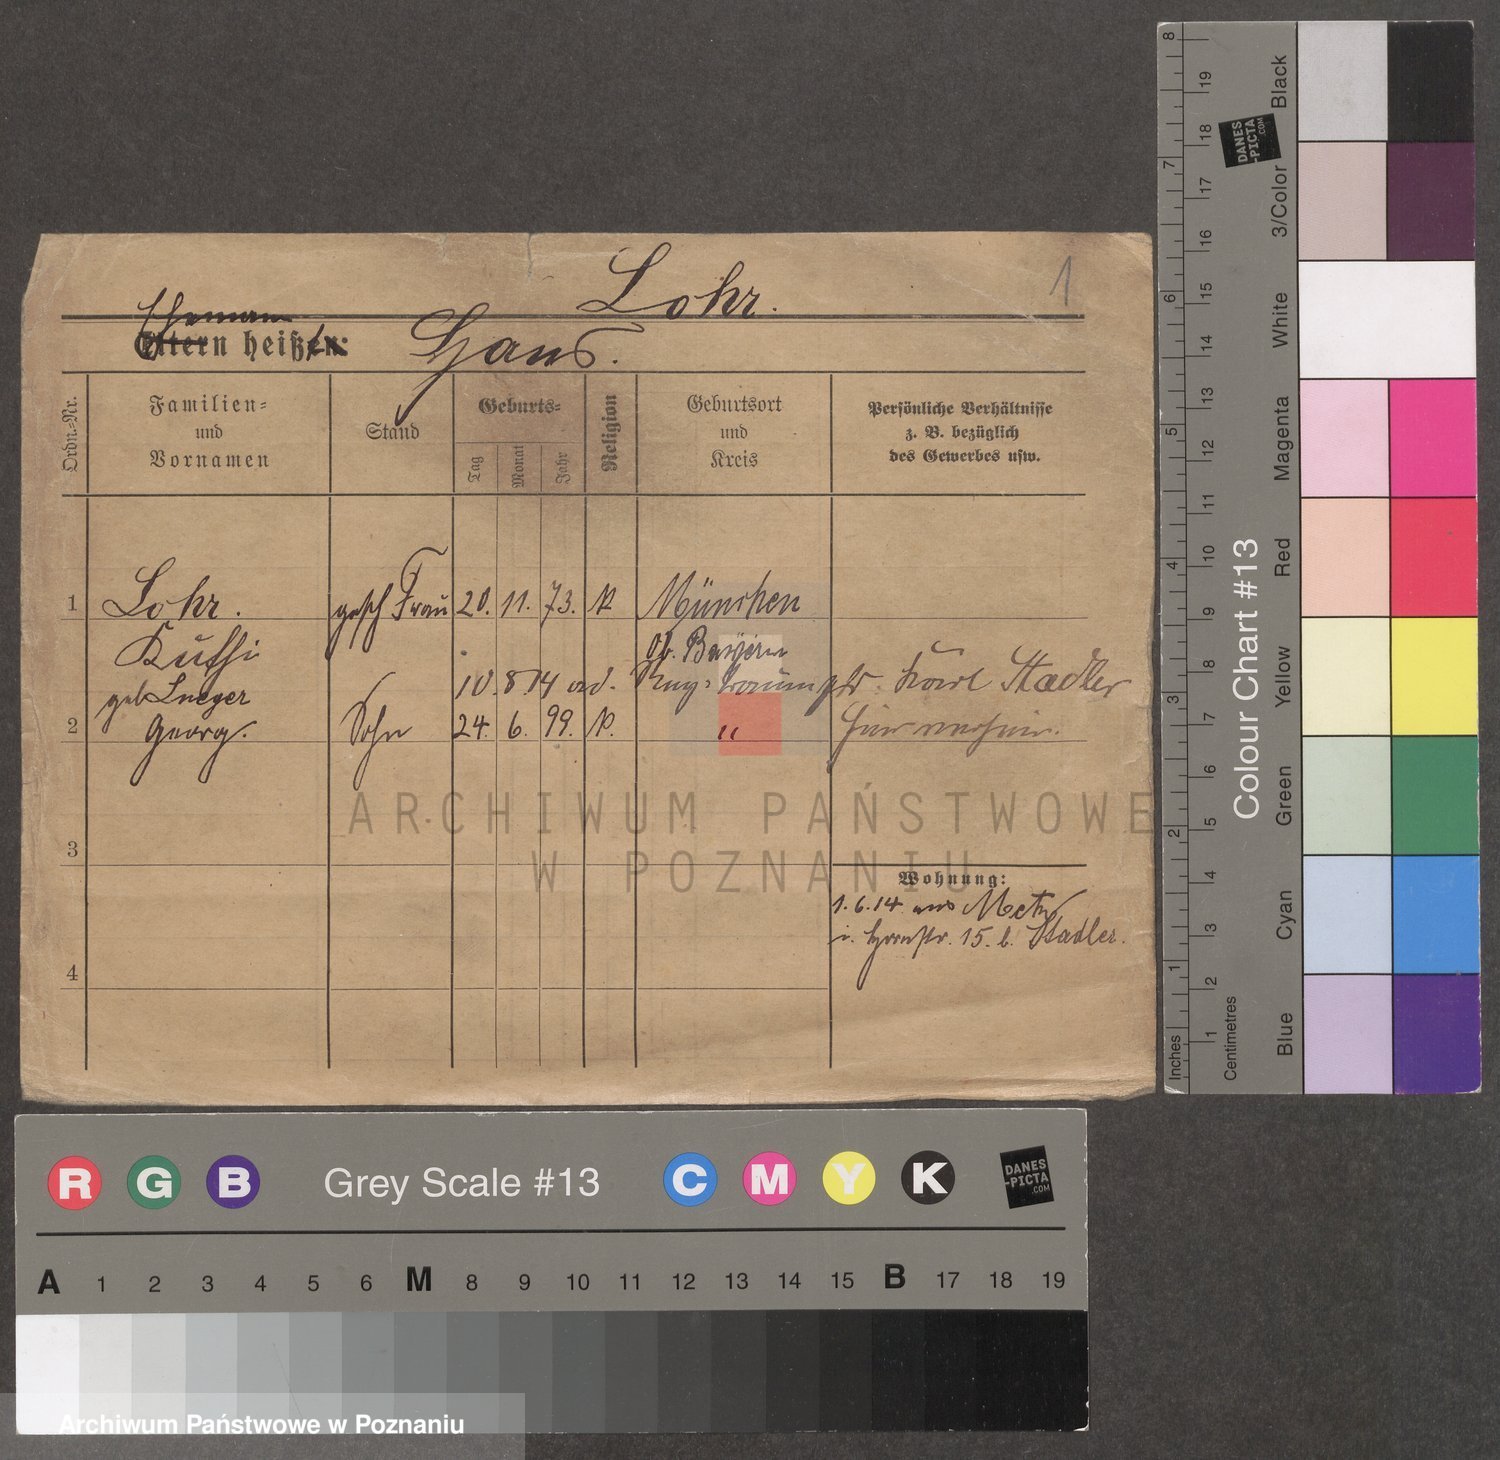 Lohr.
1
Ehemann
Eltern heißen:
Hans.
Ordn.-Nr.
Familien-
und
Vornamen
Stand
Geburts-
Tag
Monat
Jahr
Religion
Geburtsort
und
Kreis
Persönliche Verhältnisse
z. B. bezüglich
des Gewerbes usw.
1
Lohr.
gesch Frau
20. 11. 73.
K
München
Ob. Bayern
geb. Lueger
10. 8 14
Karl Stadler
2
Georg.
Sohn
24. 6. 99.
K.
"
3
Wohnung:
1.6.14 aus Metz
15. b. Stadler.
4
ARCHIWUM PAŃSTWOWE
W POZNANIU
Inches
1 2 3 4 5 6 7 8
Centimetres
1 2 3 4 5 6 7 8 9 10 11 12 13 14 15 16 17 18 19
DANES
-PICTA
.COM
Colour Chart #13
Blue
Cyan
Green
Yellow
Red
Magenta
White
3/Color
Black
R G B
Grey Scale #13
C M Y K
DANES
-PICTA
.COM
A 1 2 3 4 5 6 M 8 9 10 11 12 13 14 15 B 17 18 19
Archiwum Państwowe w Poznaniu